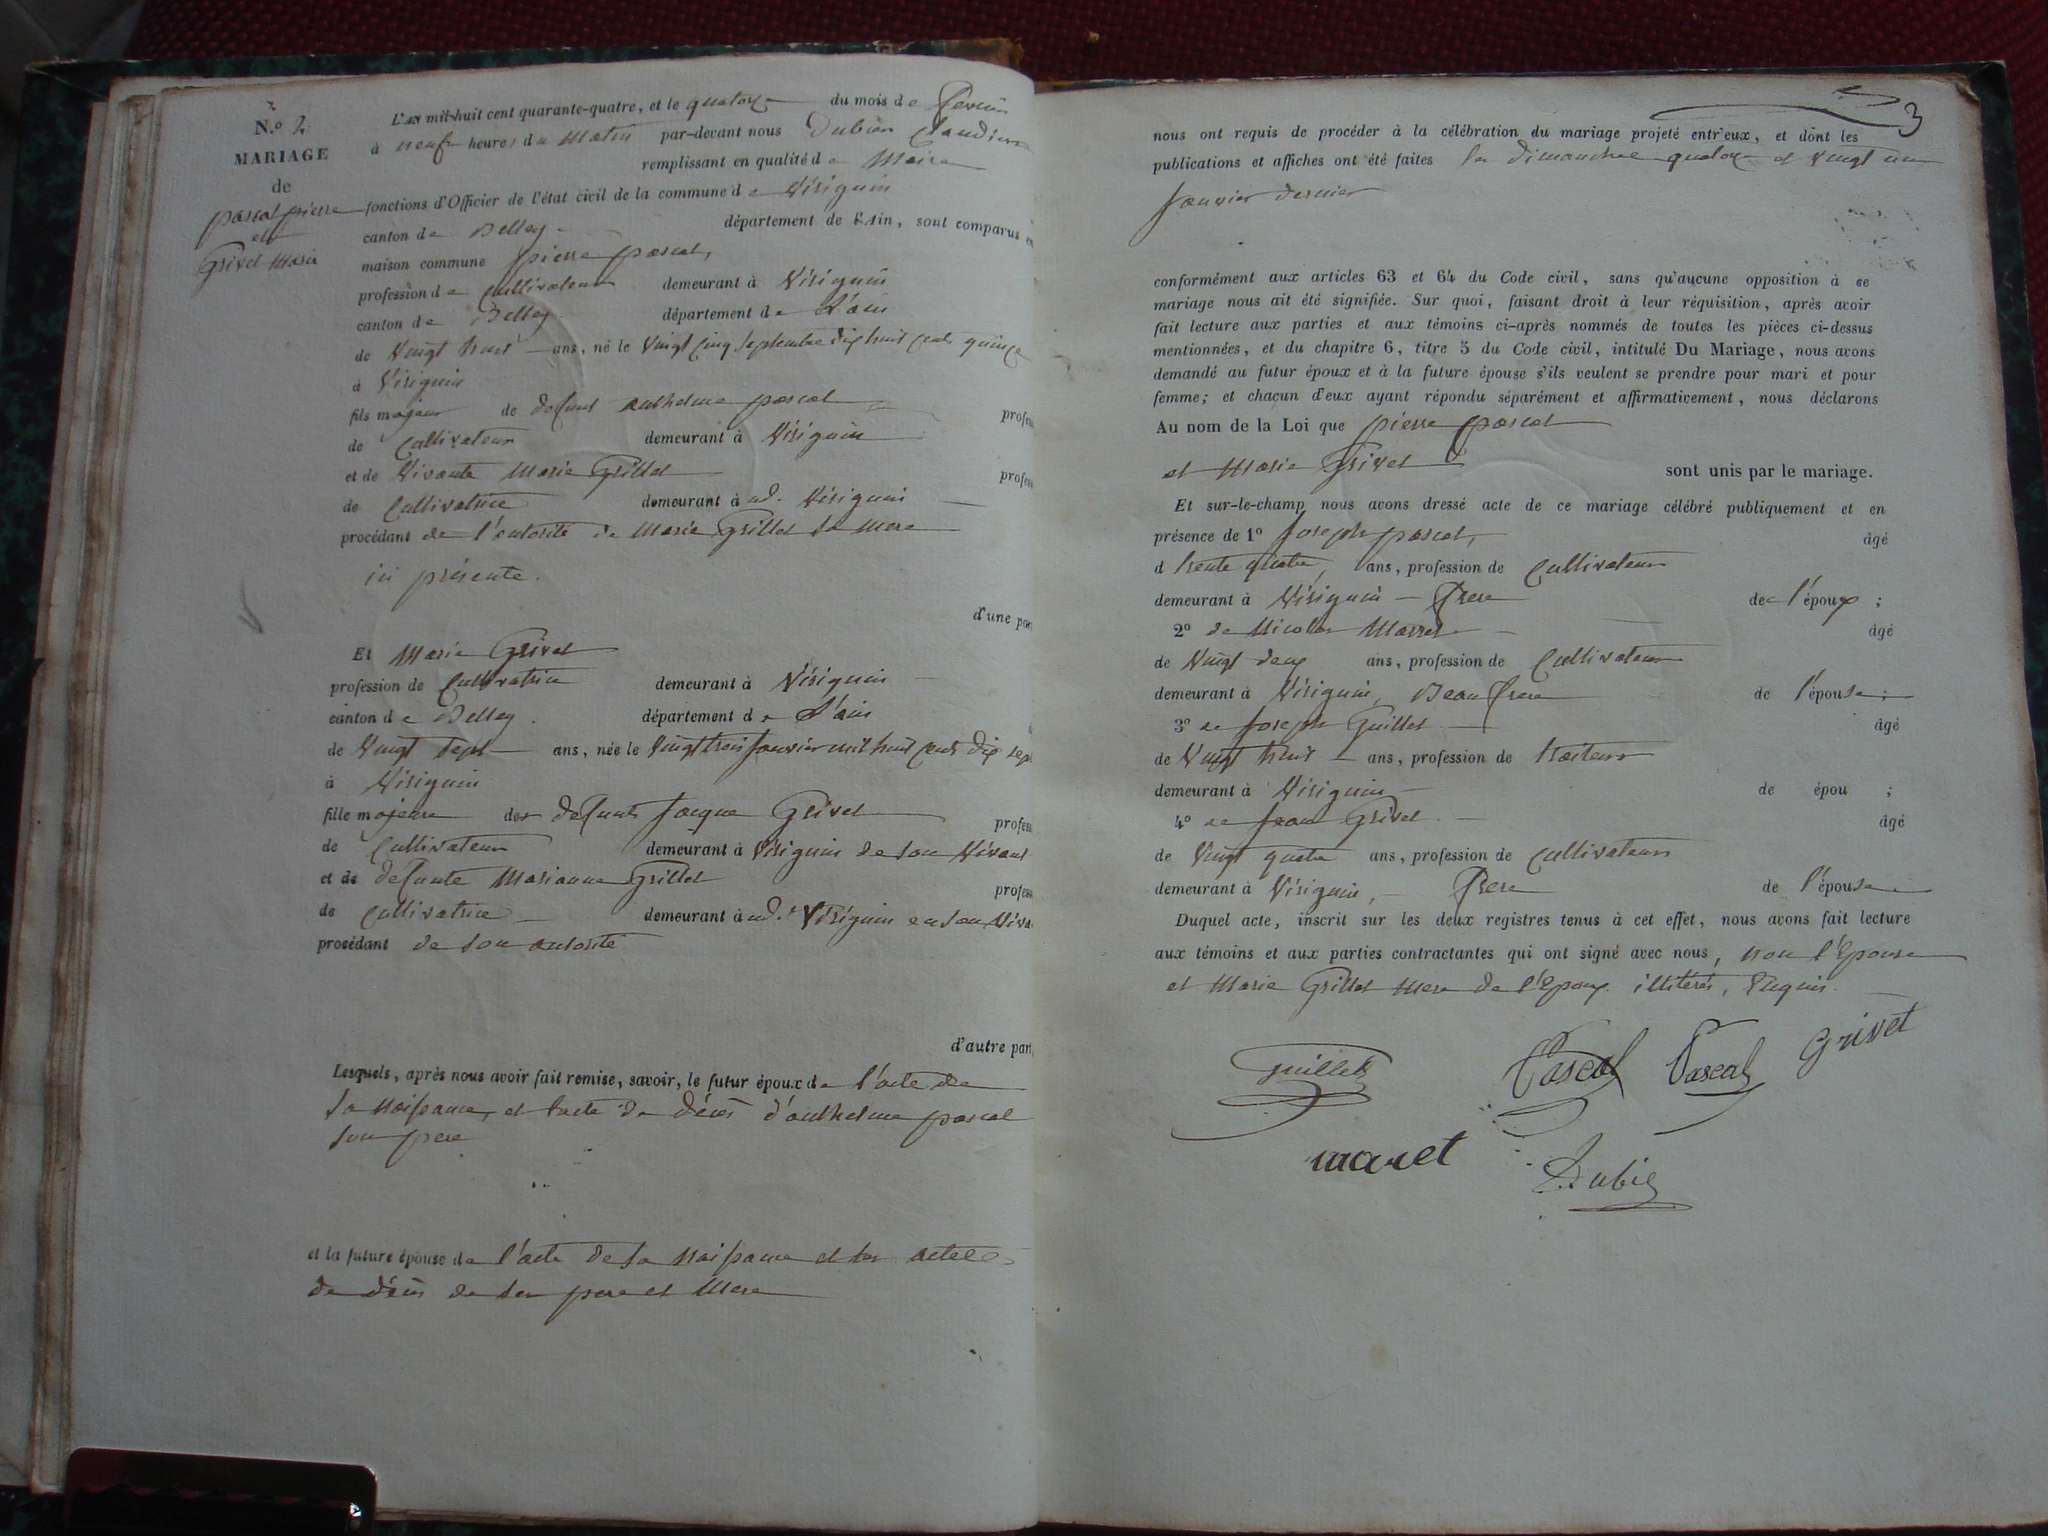 N.o 2
MARIAGE
de
pascal pierre
et
Grivet Marie
L'an mil-huit cent quarante-quatre, et le quatorze du mois de fevrier
à neuf heures du matin par-devant nous Dubien Claudius
remplissant en qualité de Maire
fonctions d'Officier de l'état civil de la commune de Virignin
canton de Belley département de l'Ain, sont comparus en
maison commune pierre pascal,
profession de Cultivateur demeurant à Virignin
canton de Belley département de L'ain
de Vingt huit ans, né le Vingt cinq septembre dix huit cent quinze
à Virignin
fils majeur de defunt anthelme pascal profess
de Cultivateur demeurant à Virignin
et de Vivante Marie Grillet profess
de Cultivatrice demeurant à ud. Virignin
procédant de l'autorité de Marie Grillet sa mere
ici présente.
d'une part
Et Marie Grivet
profession de Cultivatrice demeurant à Virignin
canton de Belley département de L'ain
de Vingt sept ans, née le Vingt trois Janvier mil huit cent dix sept
à Virignin
fille majeure de defunt Jacque Grivet profess
de Cultivateur demeurant à Virignin de son Vivant
et de defunte Marianne Grillet profess
de Cultivatrice demeurant à ud.t Virignin en son Viva
procédant de son autorité
d'autre part,
Lesquels, après nous avoir fait remise, savoir, le futur époux de l'acte de
sa naissance, et l'acte de décès d'anthelme pascal
son pere
et la future épouse de l'acte de sa naissance et les actes
de décès de ses pere et mere
3
nous ont requis de procéder à la célébration du mariage projeté entr'eux, et dont les
publications et affiches ont été faites les dimanche quatorze et vingt un
Janvier dernier
conformément aux articles 63 et 64 du Code civil, sans qu'aucune opposition à ce
mariage nous ait été signifiée. Sur quoi, faisant droit à leur réquisition, après avoir
fait lecture aux parties et aux témoins ci-après nommés de toutes les pièces ci-dessus
mentionnées, et du chapitre 6, titre 5 du Code civil, intitulé Du Mariage, nous avons
demandé au futur époux et à la future épouse s'ils veulent se prendre pour mari et pour
femme; et chacun d'eux ayant répondu séparément et affirmativement, nous déclarons
Au nom de la Loi que pierre pascal
et Marie Grivet sont unis par le mariage.
Et sur-le-champ nous avons dressé acte de ce mariage célébré publiquement et en
présence de 1o Joseph pascal, âgé
d trente quatre, ans, profession de Cultivateur
demeurant à Virignin frere de l'époux ;
2o de Nicolas Marret âgé
de Vingt deux ans, profession de Cultivateur
demeurant à Virignin, Beau frere de l'épouse ;
3o de Joseph Guillet âgé
de Vingt huit ans, profession de traiteur
demeurant à Virignin de épou ;
4o de Jean Grivet âgé
de Vingt quatre ans, profession de Cultivateur
demeurant à Virignin, frere de l'épouse
Duquel acte, inscrit sur les deux registres tenus à cet effet, nous avons fait lecture
aux témoins et aux parties contractantes qui ont signé avec nous, non l'Epouse
et Marie Grillet mere de l'Epoux illitérés, Enquis.
Guillet Pascal Pascal Grivet
maret
Dubien